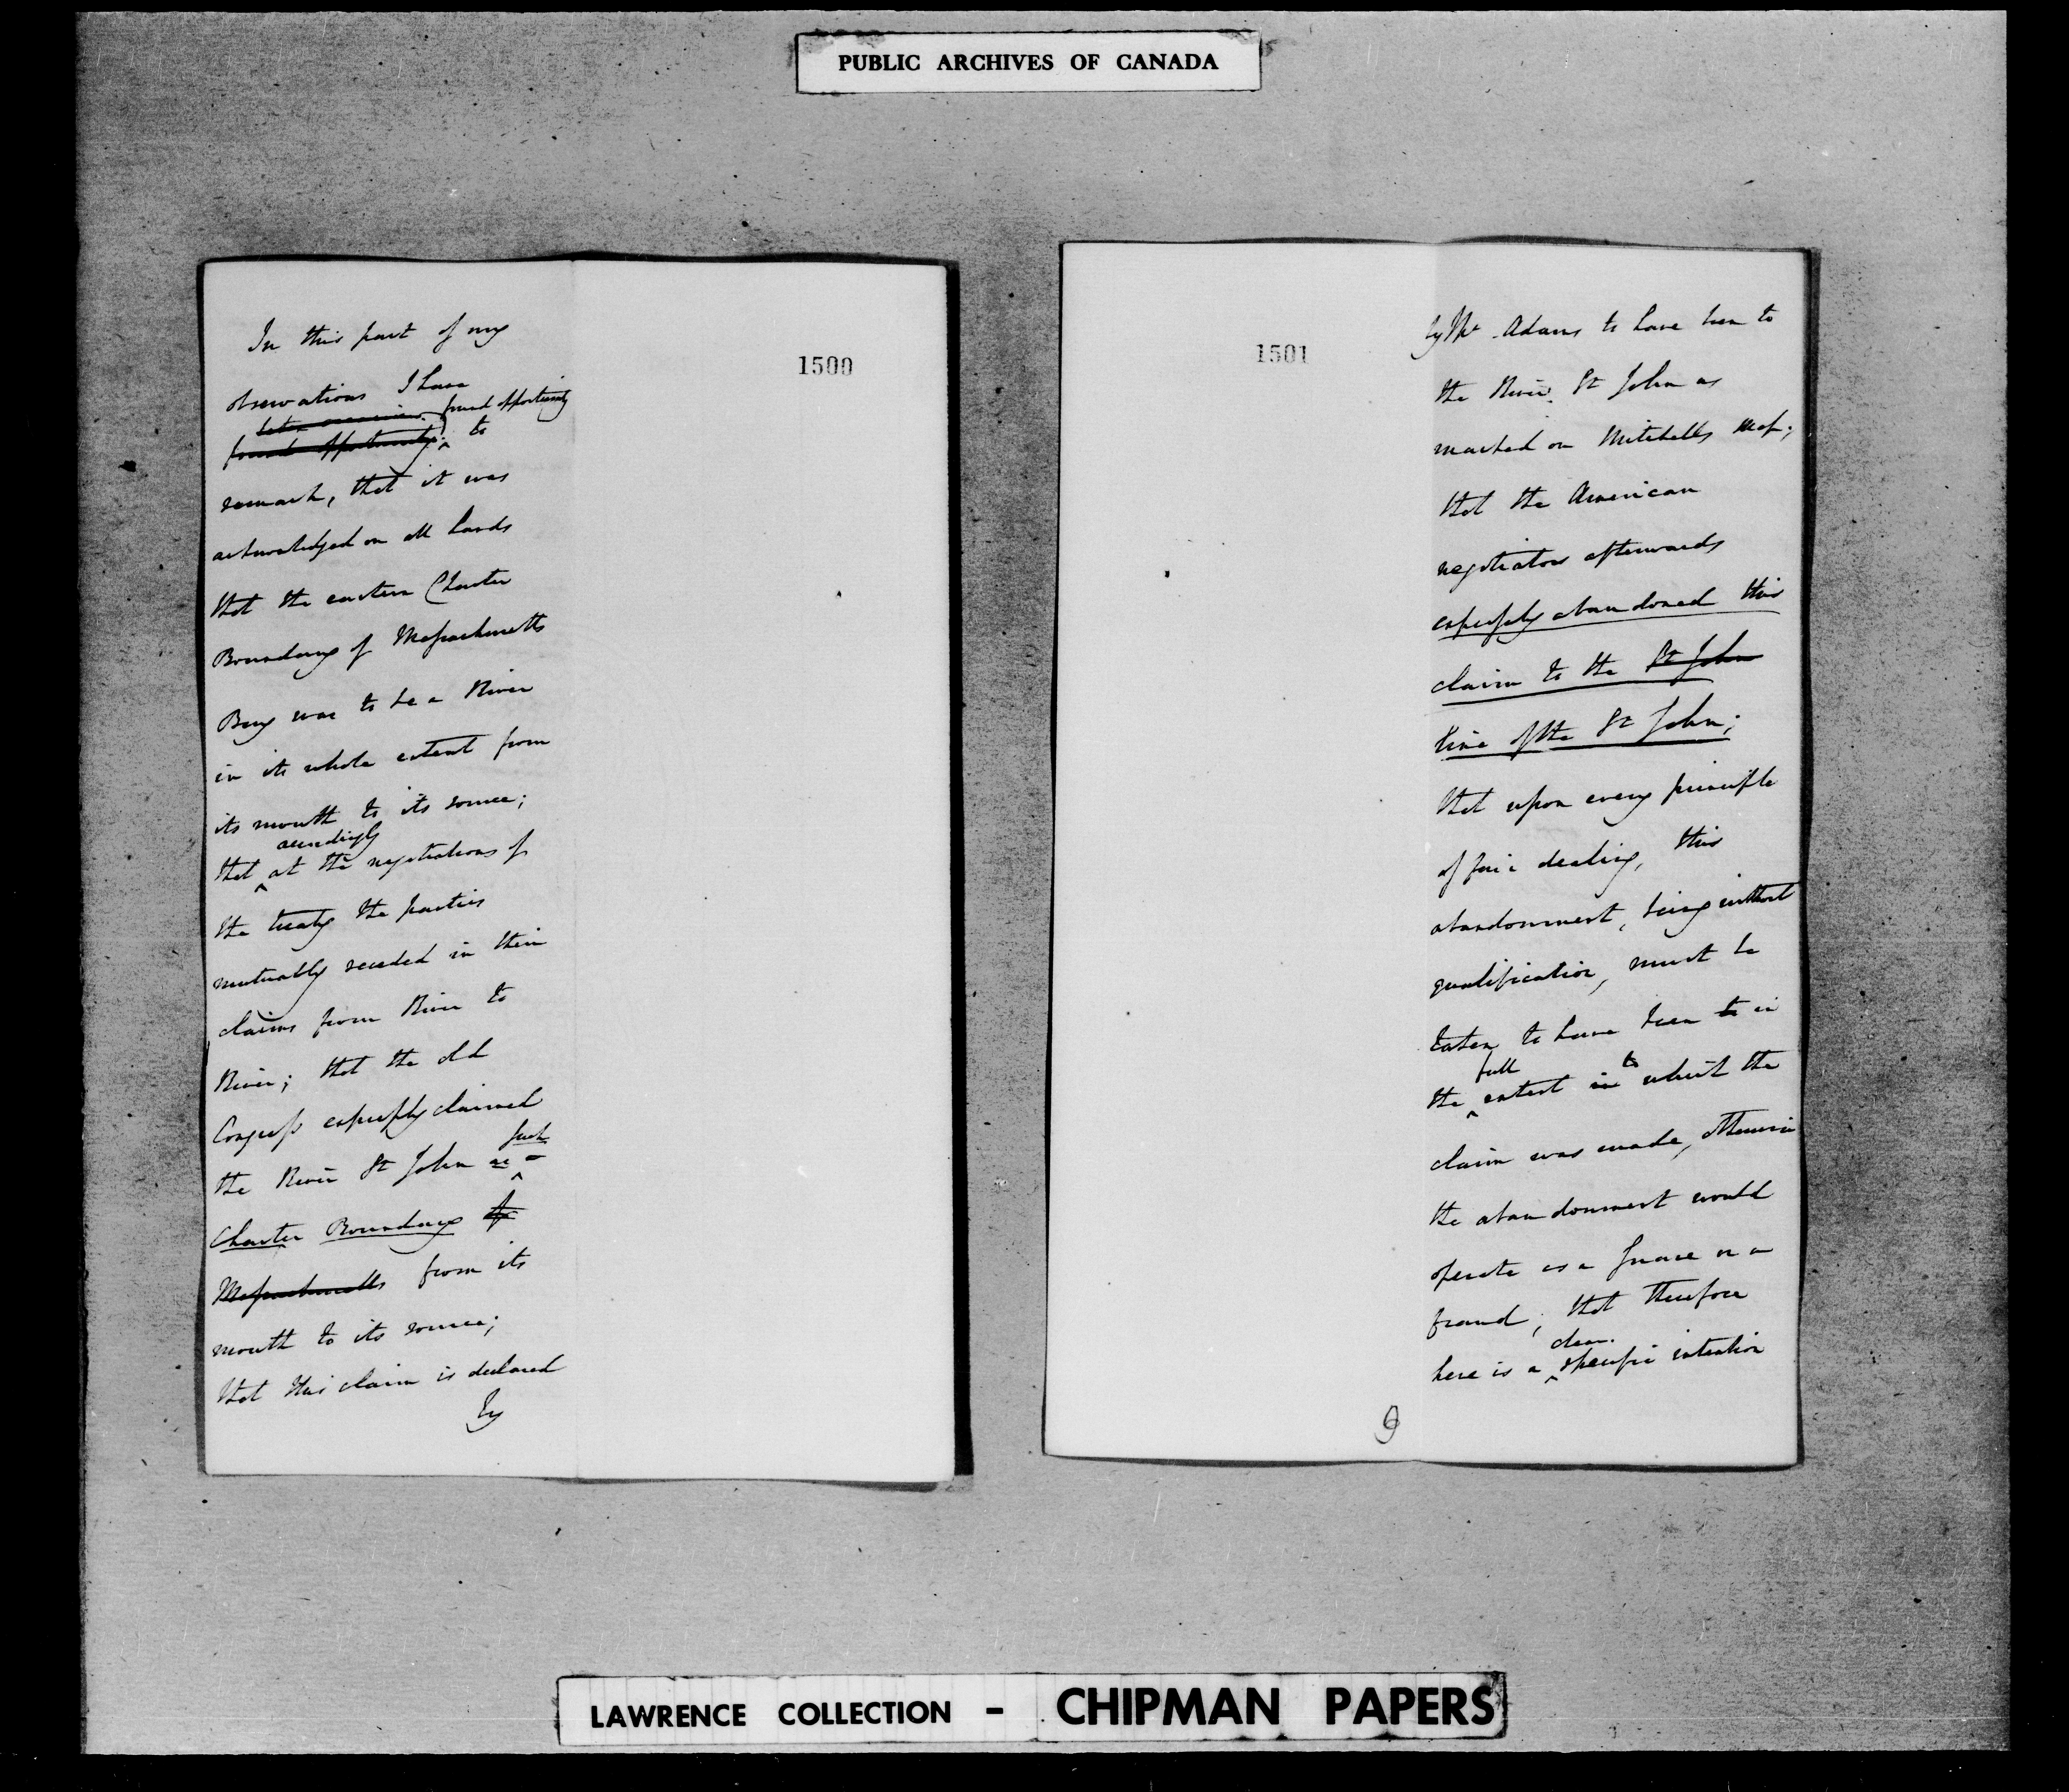 PUBLIC ARCHIVES OF CANADA
1500
In this part of my
observations I have
found opportunity
found opportunity to
remark, that it was
acknowledged on all hands
that the eastern Charter
Boundary of Massachusetts
Bay was to be a River
in its whole extent from
its mouth to its source;
accordingly
that at the negotiations of
the treaty the parties
mutually receded in their
claims from River to
River; that the old
Congress expressly claimed
such
the River St John as
Charter Boundary of
Massachusetts from its
mouth to its source;
that this claim is declared
by
1501
by Mr Adams to have been to
the River St John as
marked on Mitchells Map;
that the American
negotiators afterwards
expressly abandoned this
claim to the St John
line of the St John;
that upon every principle
of fair dealing, this
abandonment, being without
qualification, must be
taken to have been to in
full to
the extent in which the
claim was made, otherwise
the abandonment would
operate as a snare or a
fraud; that therefore
clear
here is a specific intention
9
LAWRENCE COLLECTION - CHIPMAN PAPERS